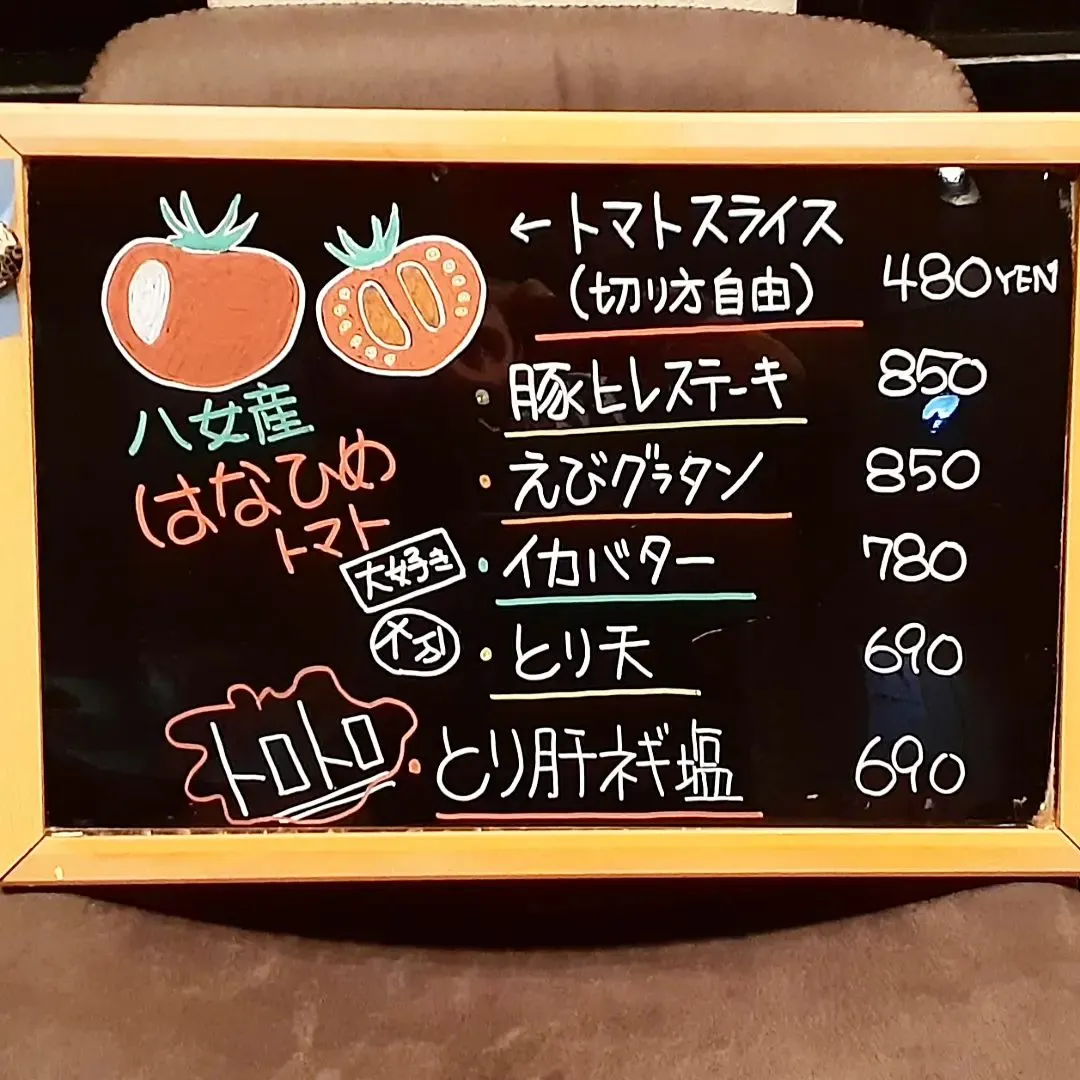 ←トマトスライス
(切り方自由)
480YEN
・豚ヒレステーキ 850
八女産
はなひめ
トマト
・えびグラタン 850
大好き
・イカバター 780
・とり天 690
トロトロ
・とり肝ネギ塩 690